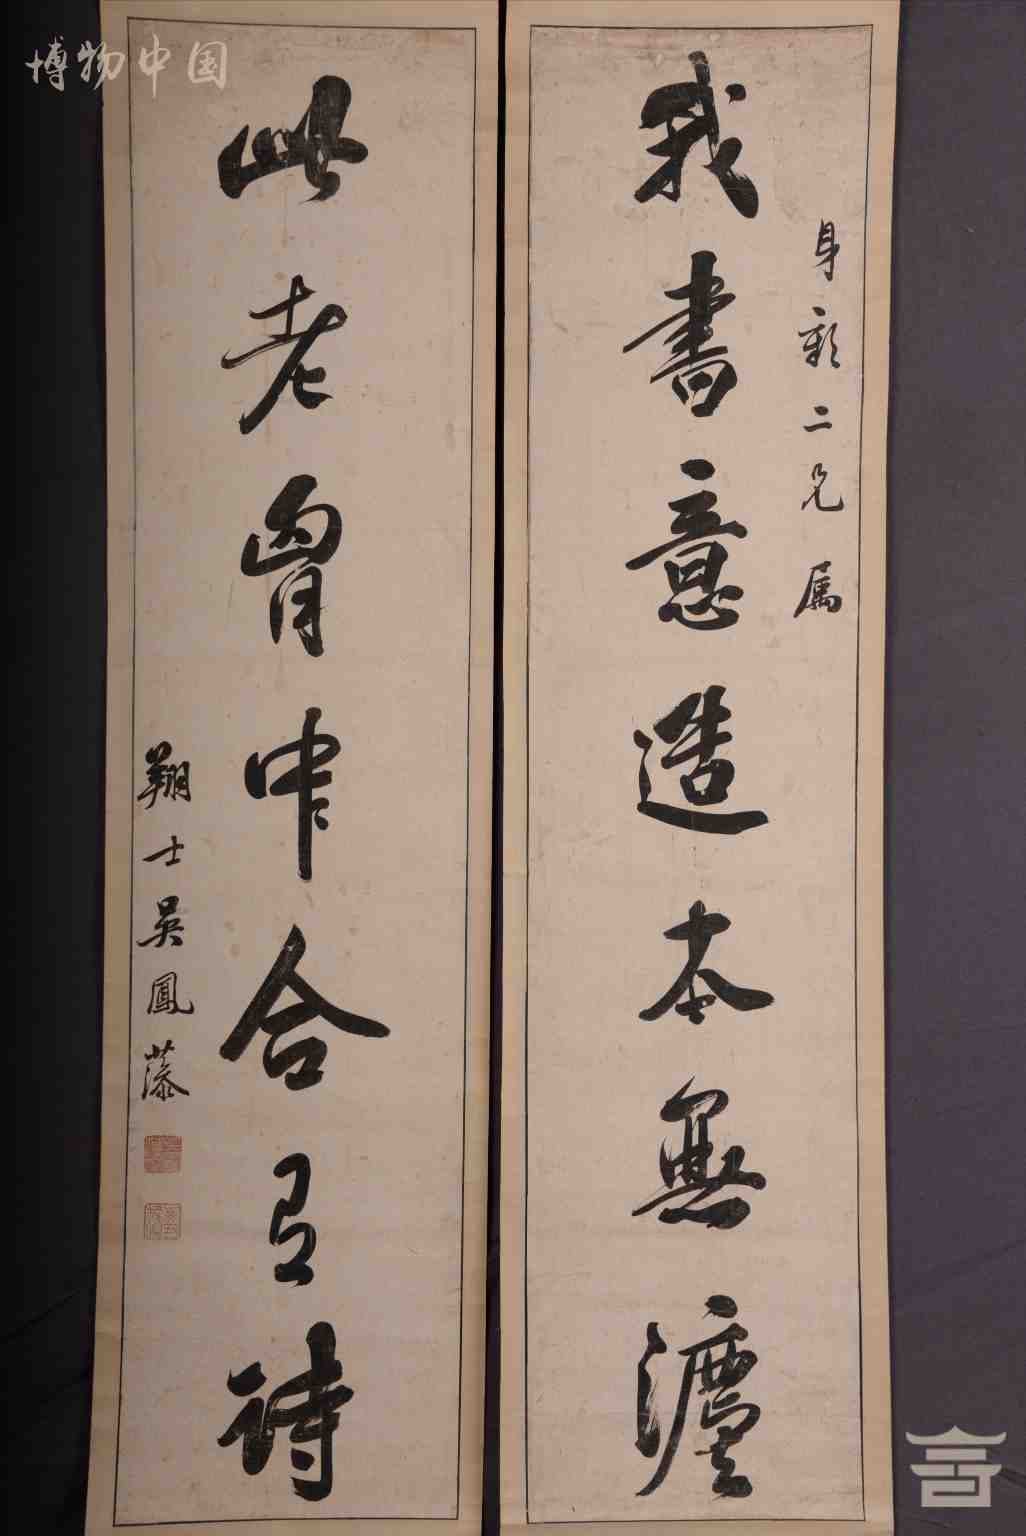 博物中国
身二兄属
我書意造本無灋
此老胷中合有詩
翔士吳鳳藻